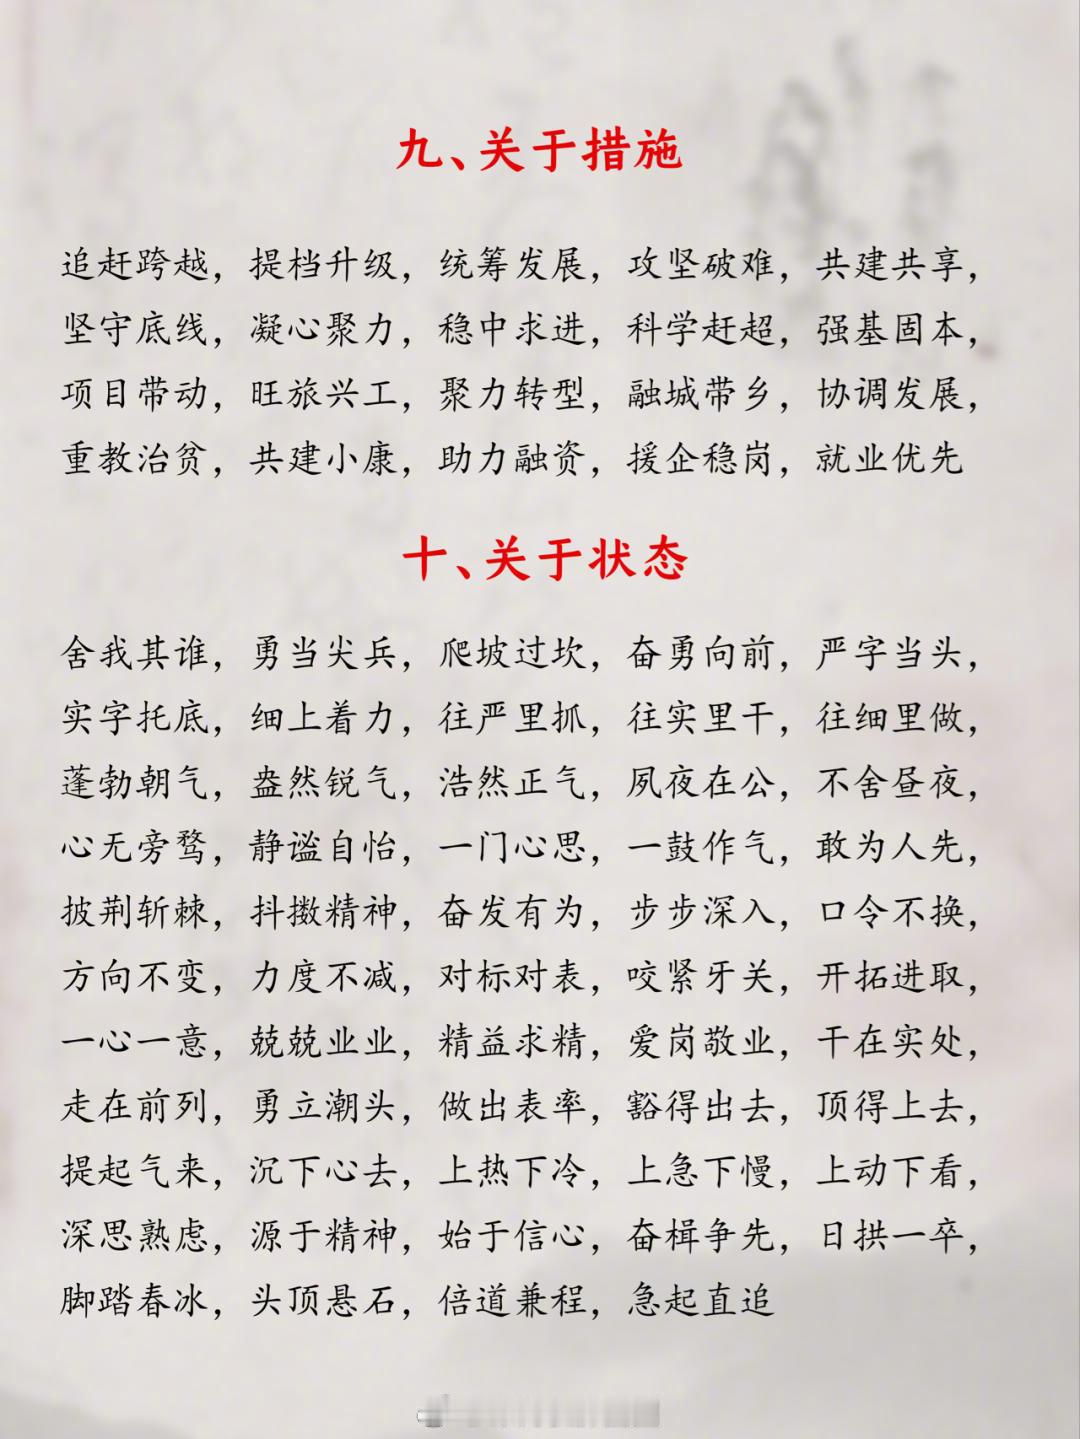 九、关于措施
追赶跨越，提档升级，统筹发展，攻坚破难，共建共享，
坚守底线，凝心聚力，稳中求进，科学赶超，强基固本，
项目带动，旺旅兴工，聚力转型，融城带乡，协调发展，
重教治贫，共建小康，助力融资，援企稳岗，就业优先
十、关于状态
舍我其谁，勇当尖兵，爬坡过坎，奋勇向前，严字当头，
实字托底，细上着力，往严里抓，往实里干，往细里做，
蓬勃朝气，盎然锐气，浩然正气，夙夜在公，不舍昼夜，
心无旁骛，静谧自怡，一门心思，一鼓作气，敢为人先，
披荆斩棘，抖擞精神，奋发有为，步步深入，口令不换，
方向不变，力度不减，对标对表，咬紧牙关，开拓进取，
一心一意，兢兢业业，精益求精，爱岗敬业，干在实处，
走在前列，勇立潮头，做出表率，豁得出去，顶得上去，
提起气来，沉下心去，上热下冷，上急下慢，上动下看，
深思熟虑，源于精神，始于信心，奋楫争先，日拱一卒，
脚踏春冰，头顶悬石，倍道兼程，急起直追